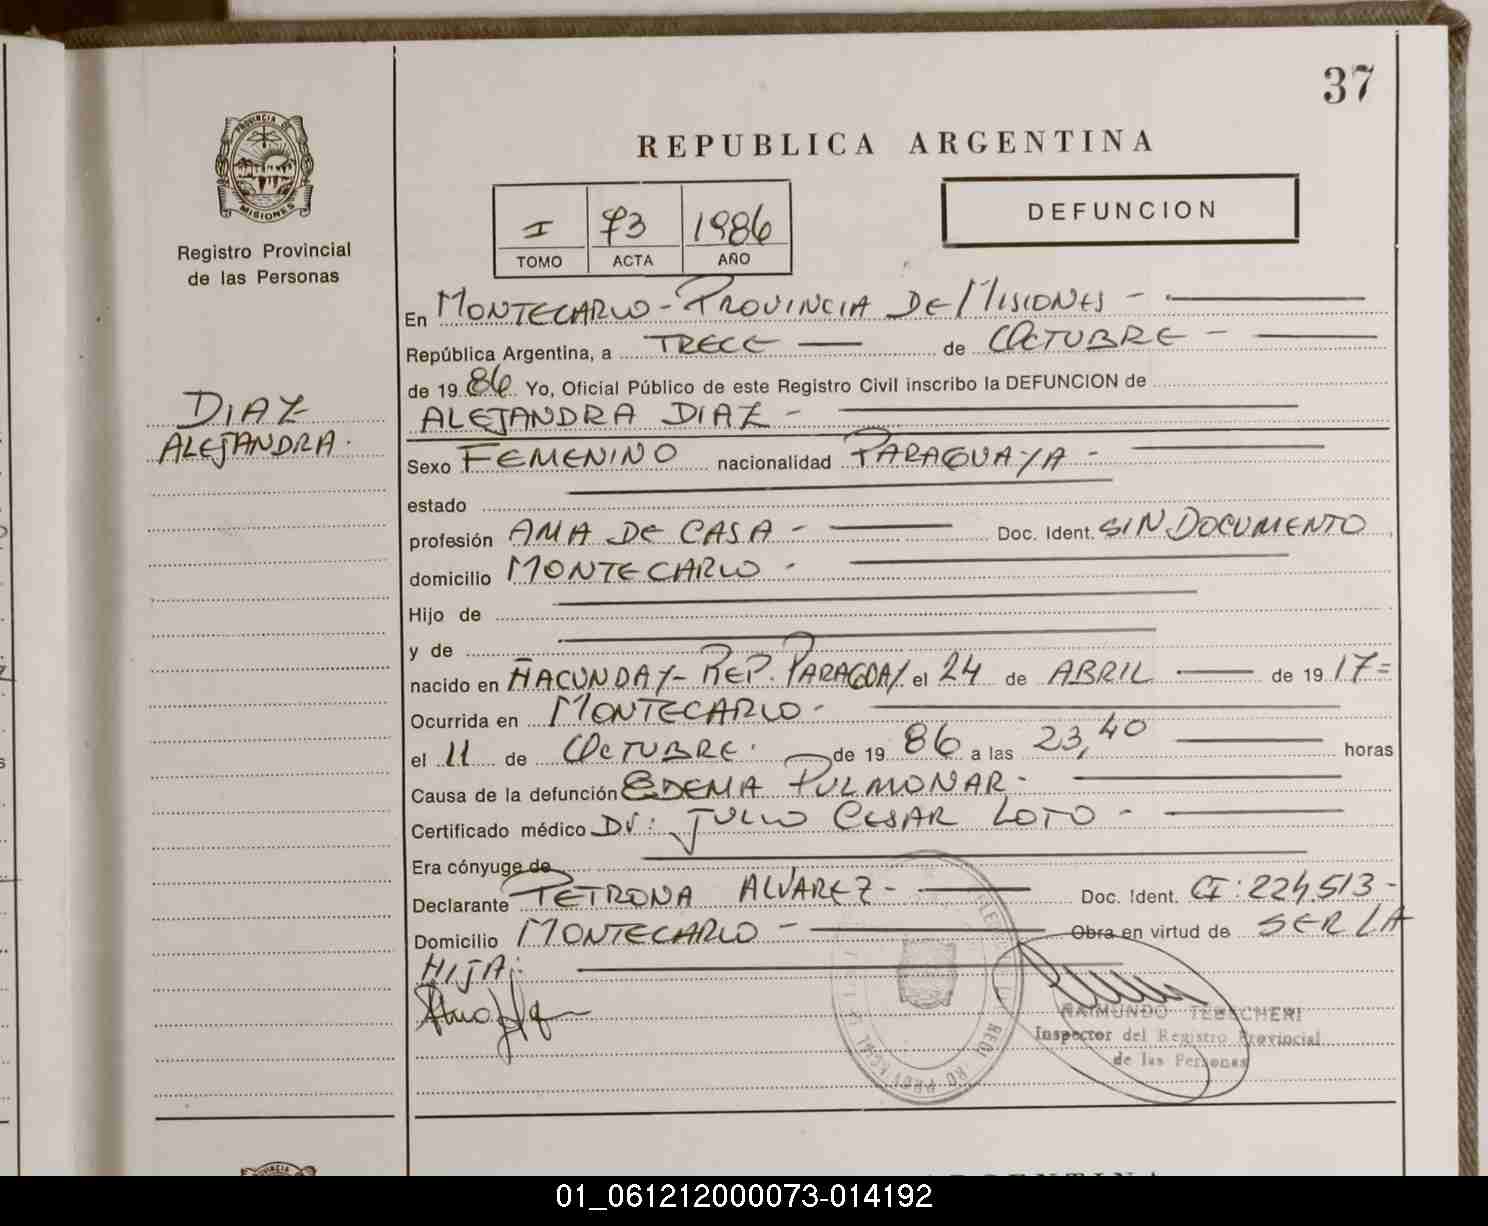 37
PROVINCIA DE
MISIONES
Registro Provincial
de las Personas
REPUBLICA ARGENTINA
I 73 1986
TOMO ACTA AÑO
DEFUNCION
DIAZ
ALEJANDRA.
En MONTECARLO - PROVINCIA DE MISIONES -
República Argentina, a TRECE de OCTUBRE -
de 19 86 Yo, Oficial Público de este Registro Civil inscribo la DEFUNCION de
ALEJANDRA DIAZ -
Sexo FEMENINO nacionalidad PARAGUAYA -
estado
profesión AMA DE CASA - Doc. Ident. SIN DOCUMENTO
domicilio MONTECARLO -
Hijo de
y de
nacido en ÑACUNDAY - REP. PARAGUAY el 24 de ABRIL de 19 17=
Ocurrida en MONTECARLO -
el 11 de OCTUBRE. de 19 86 a las 23,40 horas
Causa de la defunción EDEMA PULMONAR -
Certificado médico Dr: JULIO CESAR LOTO -
Era cónyuge de
Declarante PETRONA ALVAREZ - Doc. Ident. CI: 224.513 -
Domicilio MONTECARLO - Obra en virtud de SER LA
HIJA.
RAIMUNDO
Inspector del Registro Provincial
de las Personas
ARGENTINA
01_061212000073-014192